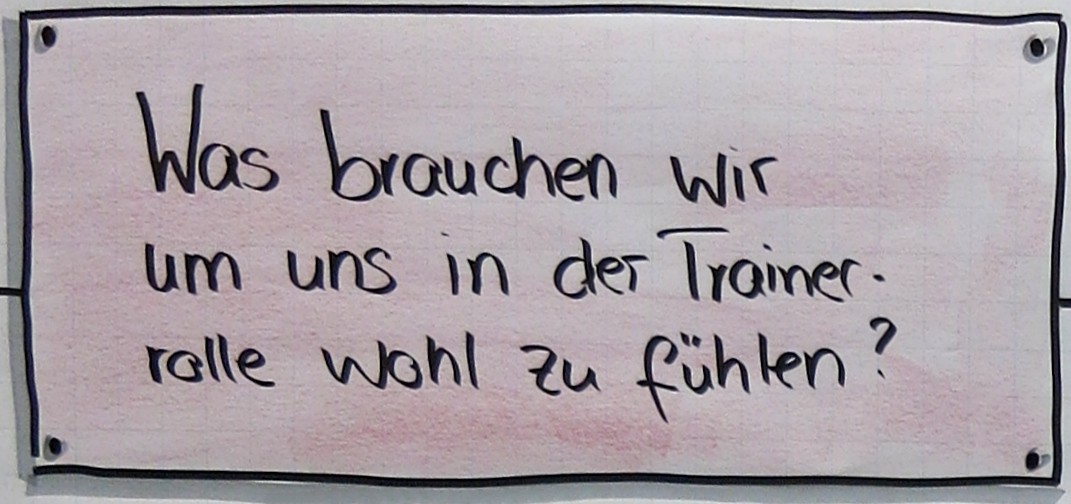 Was brauchen wir
um uns in der Trainer-
rolle wohl zu fühlen?